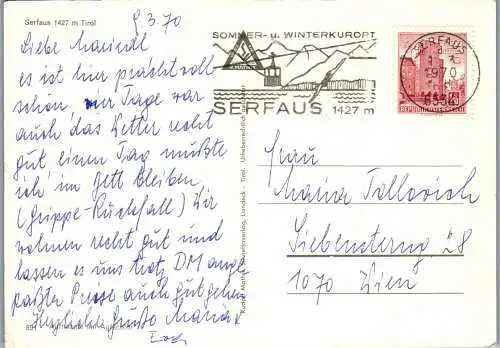 Serfaus 1427 m Tirol
9.3.70
Liebe Mariedl
es ist hier prachtvoll
schön, vier Tage war
auch das Wetter recht
gut einen Tag mußte
ich im Bett bleiben
(Grippe-Rückfall) Wir
wohnen recht gut und
lassen es uns trotz DM ange-
paßter Preise auch gut gehen
Herzliche Grüße Maria
SOMMER- u. WINTERKURORT
SERFAUS 1427 m
SERFAUS
1970
6534
REPUBLIK ÖSTERREICH
Frau
Maria
Siebensterng 28
1070 Wien
Landeck - Tirol. Urheberrechtlich